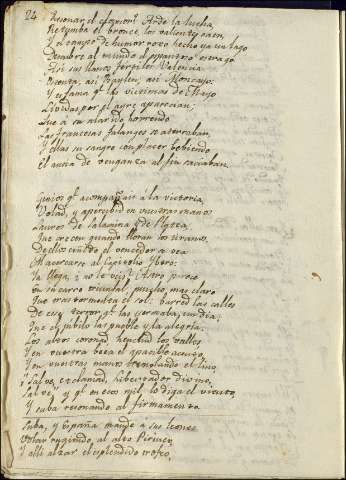 24
Resonar el clarion? Arde la lucha,
Retumba el bronce, los valientes caen,
El campo de humor roxo hecho ya un lago
Descubre al mundo el espantoso estrago
Asi sus llanos fertiles Valencia
Ostenta, asi Baylen, asi Moncayo;
Y es fama q.e las victimas de Mayo
Lividas por el ayre aparecian;
Que á su alarido horrendo
Las francesas falanges se aterraban,
Y ellas su sangre con placer bebiendo
El ansia de venganza al fin saciaban.
Genios q.e acompañais á la victoria,
Volad, y apercibid en vuestras manos
Lauros de Salamina y de Platea,
Que crecen quando lloran los tiranos,
De ellos ceñido el vencedor se vea
Al acercarse al Capitolio Ibero:
Ya llega, ¿no le veis? Astro parece
En su carro triunfal, mucho mas claro
Que tras tormenta el sol: barred las calles
De ese terror q.e las yermaba un dia;
Que el jubilo las pueble y la alegria:
Los altos coronad, henchid los valles
Y en vuestra boca el apacible acento,
Y en vuestras manos tremolando el lino,
Salve, exclamad, Libertador divino,
Salve, y q.e en ecos mil lo diga el viento,
Y suba resonando al firmamento.
Suba, y España mande á sus leones
Volar rugiendo al alto Pirineo,
Y alli alzar el esplendido trofeo,